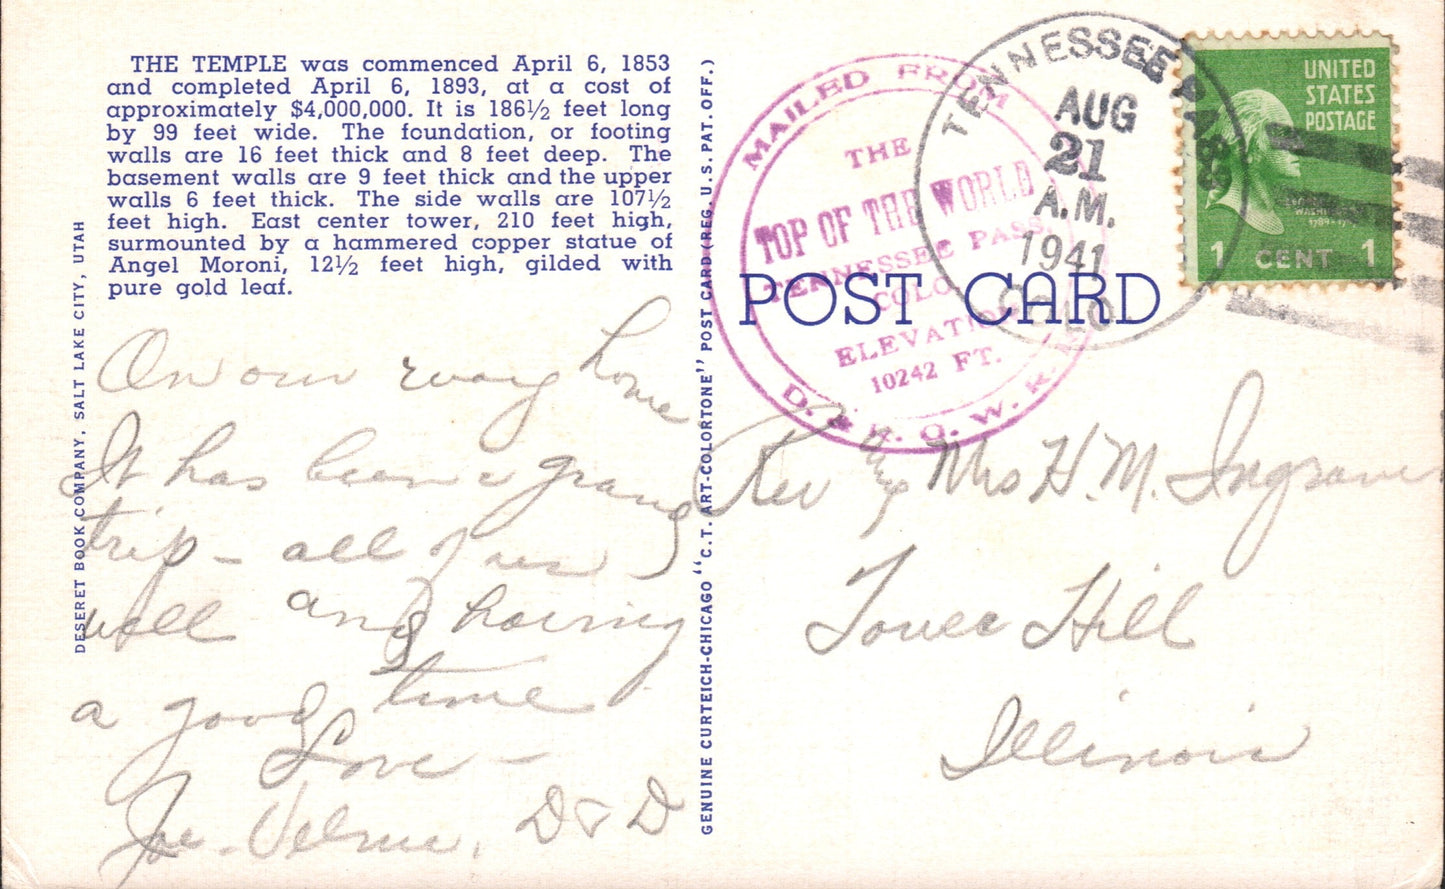 THE TEMPLE was commenced April 6, 1853
and completed April 6, 1893, at a cost of
approximately $4,000,000. It is 186½ feet long
by 99 feet wide. The foundation, or footing
walls are 16 feet thick and 8 feet deep. The
basement walls are 9 feet thick and the upper
walls 6 feet thick. The side walls are 107½
feet high. East center tower, 210 feet high,
surmounted by a hammered copper statue of
Angel Moroni, 12½ feet high, gilded with
pure gold leaf.
DESERET BOOK COMPANY, SALT LAKE CITY, UTAH
On our way home
It has been a grand
trip - all of us
well and having
a good time
Love -
Joe. Velma, D & D
GENUINE CURTEICH-CHICAGO "C.T. ART-COLORTONE" POST CARD (REG. U.S. PAT. OFF.)
MAILED FROM
THE
TOP OF THE WORLD
TENNESSEE PASS,
COLO
ELEVATION
10242 FT.
D. & R. G. W. R. R.
TENNESSEE PASS
AUG
21
A.M.
1941
COLO
UNITED
STATES
POSTAGE
1 CENT 1
POST CARD
Rev & Mrs H. M. Ingraver
Tower Hill
Illinois